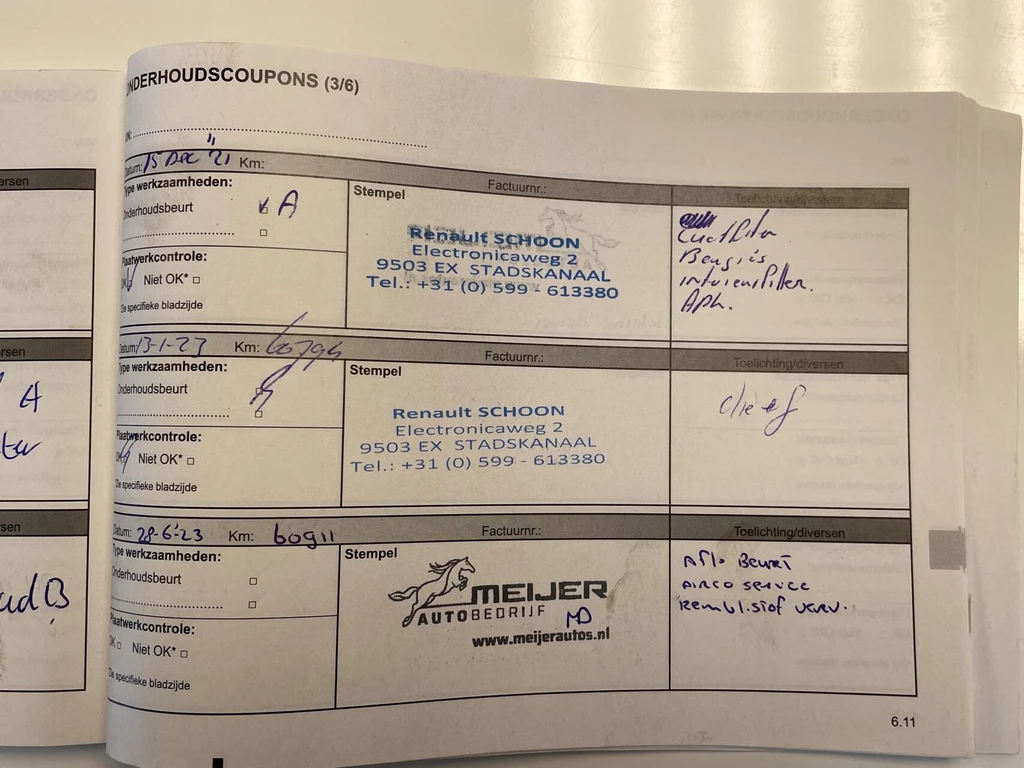 ONDERHOUDSCOUPONS (3/6)
Datum: 15 Dec '21 Km:
Type werkzaamheden:
Onderhoudsbeurt A
Plaatwerkcontrole:
Niet OK*
*Zie specifieke bladzijde
Stempel
Factuurnr.:
Renault SCHOON
Electronicaweg 2
9503 EX STADSKANAAL
Tel.: +31 (0) 599 - 613380
Toelichting/diversen
Datum: 13-1-23 Km:
Type werkzaamheden:
Onderhoudsbeurt
Plaatwerkcontrole:
OK Niet OK*
*Zie specifieke bladzijde
Stempel
Factuurnr.:
Renault SCHOON
Electronicaweg 2
9503 EX STADSKANAAL
Tel.: +31 (0) 599 - 613380
Toelichting/diversen
Datum: 28-6-23 Km: 60911
Type werkzaamheden:
Onderhoudsbeurt
Plaatwerkcontrole:
OK Niet OK*
*Zie specifieke bladzijde
Stempel
Factuurnr.:
MEIJER
AUTOBEDRIJF
www.meijerautos.nl
Toelichting/diversen
Afl. Beurt
Airco service
Remvl.stof verv.
6.11